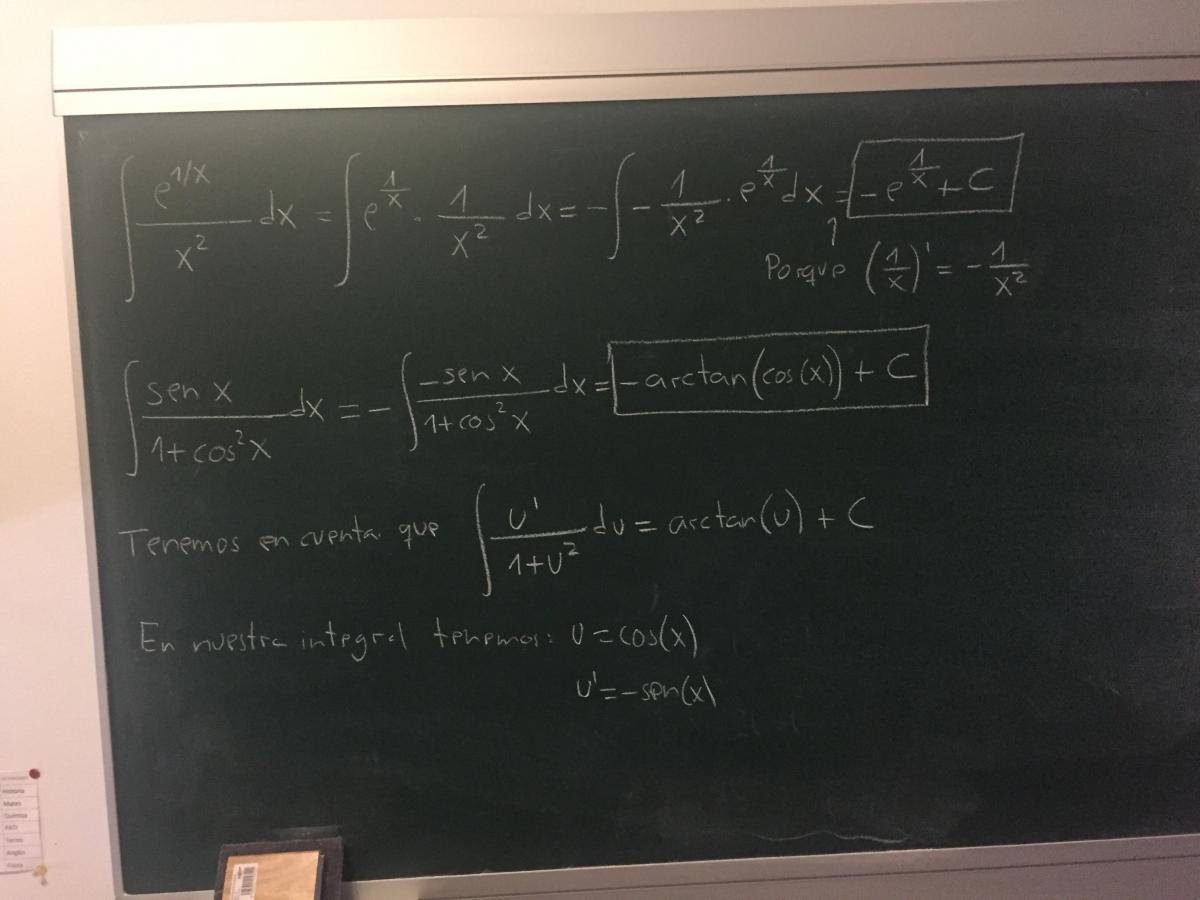 ∫ e^{1/x}/x² dx = ∫ e^{1/x} · 1/x² dx = -∫ -1/x² · e^{1/x} dx = -e^{1/x} + C
Porque (1/x)' = -1/x²
∫ sen x/(1+cos²x) dx = -∫ -sen x/(1+cos²x) dx = -arctan(cos(x)) + C
Tenemos en cuenta que ∫ u'/(1+u²) du = arctan(u) + C
En nuestra integral tenemos: u = cos(x)
u' = -sen(x)
Historia
Mates
Química
Inglés
Física